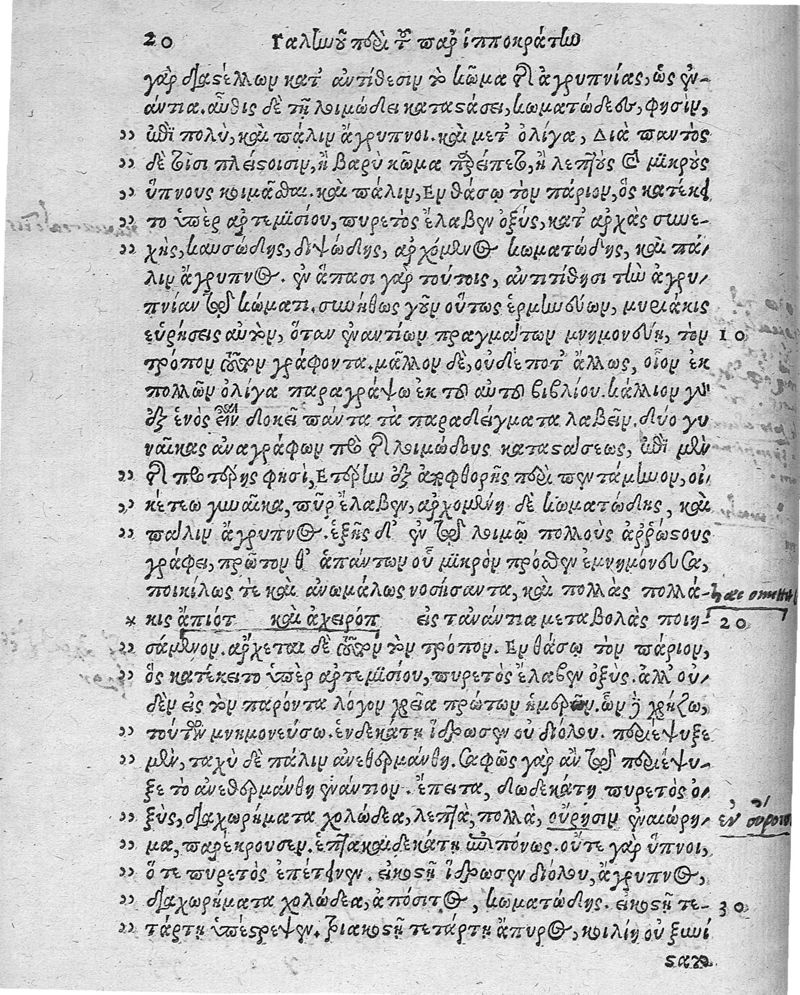 20 Γαλωοῦ περὶ τοῦ παρ' ἱπποκράτῳ
γὰρ διαστέλλων κατ' ἀντίθεσιν τὸ κῶμα τῆς ἀγρυπνίας, ὡς ἐν-
άντια. αὖθις δὲ τῇ λοιμώδει καταστάσει, κωματώδεες, φησὶν,
,, ἐπὶ πολὺ, καὶ πάλιν ἄγρυπνοι. καὶ μετ' ὀλίγα, Διὰ παντὸς
,, δὲ τοῖσι πλείστοισιν, ἢ βαρὺ κῶμα παρέπετο, ἢ λεπτοὺς καὶ μικροὺς
,, ὕπνους κοιμᾶσθαι. καὶ πάλιν, Ἐν θάσῳ τὸν πάριον, ὃς κατέκει
,, το ὑπὲρ ἀρτεμισίου, πυρετὸς ἔλαβεν ὀξύς, κατ' ἀρχὰς συνε-
,, χὴς, καυσώδης, διψώδης, ἀρχόμενος κωματώδης, καὶ πά-
λιν ἄγρυπνος. ἐν ἅπασι γὰρ τούτοις, ἀντιτίθησι τὴν ἀγρυ-
πνίαν τῷ κώματι. συνήθως γοῦν οὕτως ἑρμηνεύων, μυριάκις
εὑρήσεις αὐτὸν, ὅταν ἐναντίων πραγμάτων μνημονεύῃ, τὸν 10
τρόπον τοῦτον γράφοντα. μᾶλλον δὲ, οὐδέποτ' ἄλλως, οἷον ἐκ
πολλῶν ὀλίγα παραγράψω ἐκ τοῦ αὐτοῦ βιβλίου. κάλλιον γὰρ
ἐξ ἑνὸς εἶναι δοκεῖ πάντα τὰ παραδείγματα λαβεῖν. δύο γυ
ναῖκας ἀναγράφων πρὸ τῆς λοιμώδους καταστάσεως, ἐπὶ μὲν
,, τῆς προτέρης φησὶ, Ἑτέρην ἐξ ἀποφθορῆς περὶ πεντάμηνον, οἰ-
,, κέτεω γυναῖκα, πῦρ ἔλαβεν, ἀρχομένη δὲ κωματώδης, καὶ
,, πάλιν ἄγρυπνος. ἑξῆς δ' ἐν τῷ λοιμῷ πολλοὺς ἀρρώστους
γράφει, πρῶτον θ' ἁπάντων οὗ μικρὸν πρόσθεν ἐμνημόνευσα,
ποικίλως τὲ καὶ ἀνωμάλως νοσήσαντα, καὶ πολλὰς πολλά- hac omittit
* κις ἄπιότ καὶ ἀχειρόπ εἰς τἀνάντια μεταβολὰς ποιη- 20
σάμενον. ἄρχεται δὲ τοῦτον τὸν τρόπον. Ἐν θάσῳ τὸν πάριον,
,, ὃς κατέκειτο ὑπὲρ ἀρτεμισίου, πυρετὸς ἔλαβεν ὀξύς. ἀλλ' οὐ-
δὲν εἰς τὸν παρόντα λόγον χρεία πρώτων ἡμερῶν. ὧν δὲ χρῄζω,
,, τούτων μνημονεύσω. ἑνδεκάτῃ ἵδρωσεν οὐ διόλου. περιέψυξε
,, μὲν, ταχὺ δὲ πάλιν ἀνεθερμάνθη. Σαφῶς γὰρ ἂν τῷ περιέψυ-
ξε τὸ ἀνεθερμάνθη ἐναντίον. ἔπειτα, δωδεκάτῃ πυρετὸς ὀ-
,, ξὺς, διαχωρήματα χολώδεα, λεπτὰ, πολλὰ, οὔρησιν ἐναιώρη- ἐν οὔροισι
,, μα, παρέκρουσεν. ἑπτακαιδεκάτῃ ἐπιπόνως. οὔτε γὰρ ὕπνοι,
,, ὅ τε πυρετὸς ἐπέτεινεν. εἰκοστῇ ἵδρωσεν διόλου, ἄγρυπνος,
,, διαχωρήματα χολώδεα, ἀπόσιτος, κωματώδης. εἰκοστῇ τε- 30
,, τάρτῃ ὑπέστρεψεν. τριακοστῇ τετάρτῃ ἄπυρος, κοιλίη οὐ ξυνί
στατο